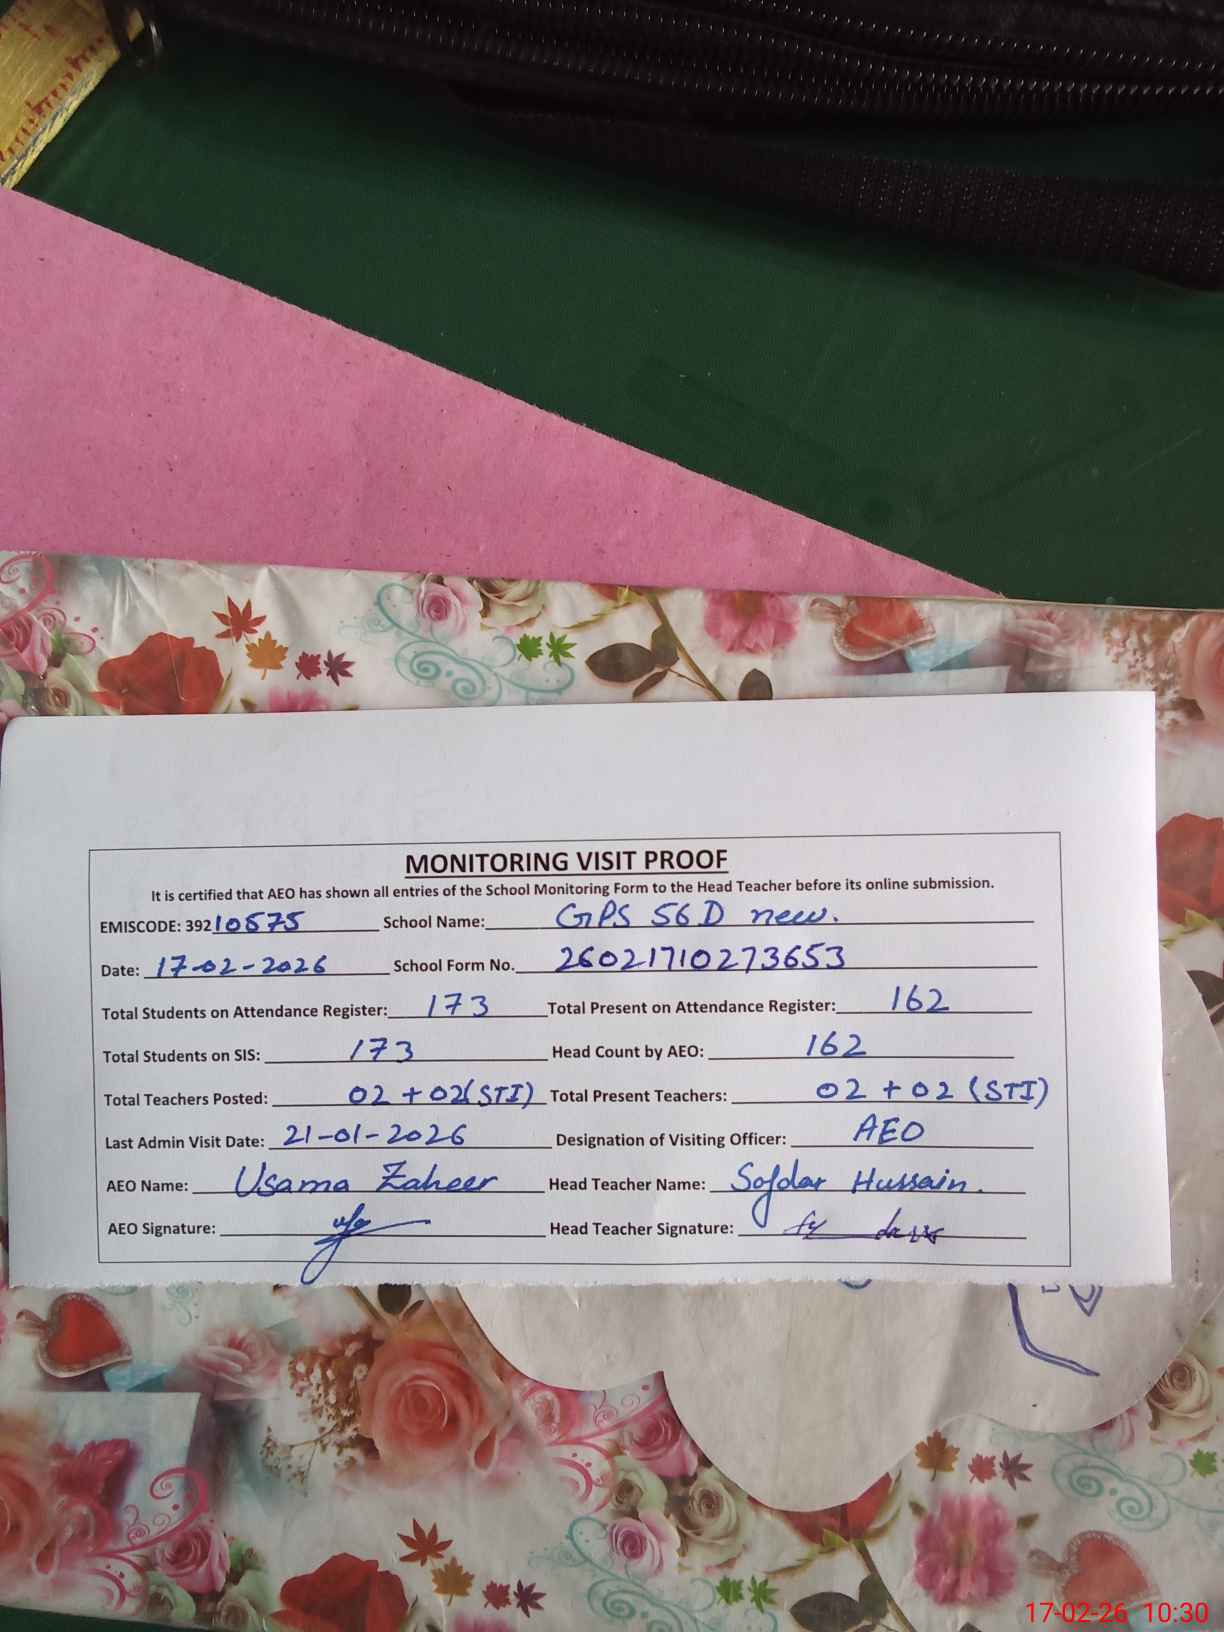 MONITORING VISIT PROOF
It is certified that AEO has shown all entries of the School Monitoring Form to the Head Teacher before its online submission.
EMISCODE: 39210575 School Name: GPS 56D new.
Date: 17-02-2026 School Form No. 26021710273653
Total Students on Attendance Register: 173 Total Present on Attendance Register: 162
Total Students on SIS: 173 Head Count by AEO: 162
Total Teachers Posted: 02 + 02(STI) Total Present Teachers: 02 + 02 (STI)
Last Admin Visit Date: 21-01-2026 Designation of Visiting Officer: AEO
AEO Name: Usama Zaheer Head Teacher Name: Safdar Hussain.
AEO Signature: Head Teacher Signature:
17-02-26 10:30